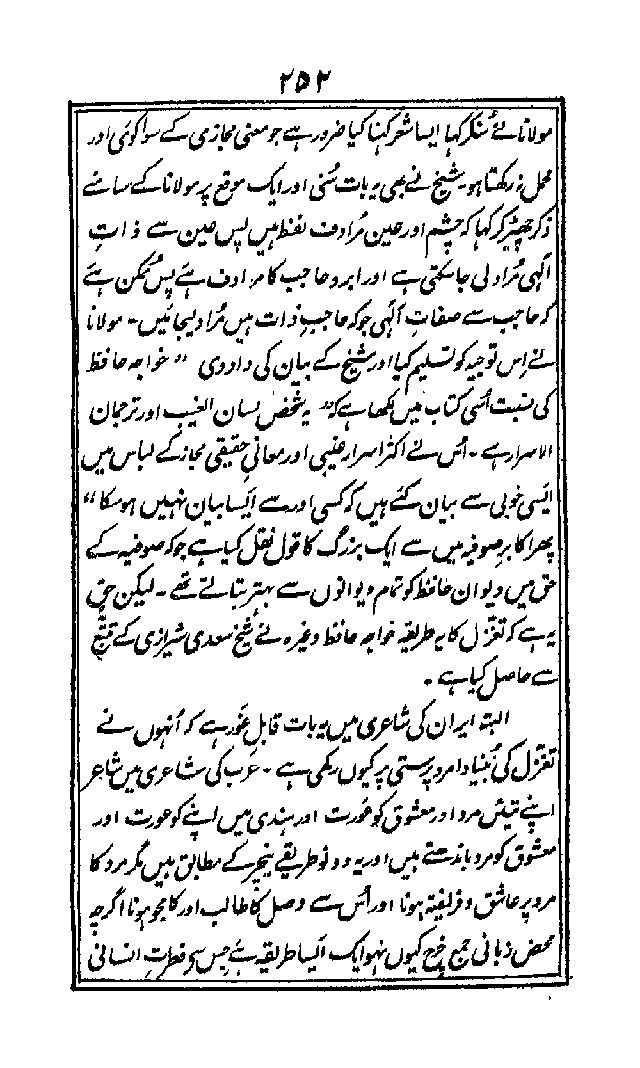 ۲۵۲
مولانا نے سُنکر کہا ایسا شعر کہنا کیا ضرور ہے جو معنی مجازی کے سوا کوئی اور
محل نہ رکھتا ہو۔ شیخ نے بھی یہ بات سُنی اور ایک موقع پر مولانا کے سامنے
ذکر چھیڑ کر کہا کہ چشم اور عین مُرادف لفظ ہیں پس عین سے ذاتِ
الٰہی مُراد لی جا سکتی ہے اور ابرو حاجب کا مرادف ہے پس مُمکن ہے
کہ حاجب سے صفاتِ الٰہی جو کہ حاجبِ ذات ہیں مُراد لیجائیں۔ مولانا
نے اِس توجیہ کو تسلیم کیا اور شیخ کے بیان کی داد دی " خواجہ حافظ
کی نسبت اُسی کتاب میں لکھا ہے کہ" یہ شخص لسان الغیب اور ترجمان
الاسرار ہے۔ اُس نے اکثر اسرارِ غیبی اور معانیِ حقیقی مجاز کے لباس میں
ایسی خوبی سے بیان کئے ہیں کہ کسی اور سے ایسا بیان نہیں ہو سکا"
پھر اکابرِ صوفیہ میں سے ایک بزرگ کا قول نقل کیا ہے جو کہ صوفیہ کے
حق میں دیوانِ حافظ کو تمام دیوانوں سے بہتر بتاتے تھے۔ لیکن حق
یہ ہے کہ تغزّل کا یہ طریقہ خواجہ حافظ وغیرہ نے شیخ سعدی شیرازی کے تتبّع
سے حاصل کیا ہے۔
البتہ ایران کی شاعری میں یہ بات قابلِ غور ہے کہ اُنہوں نے
تغزّل کی بُنیاد امرد پرستی پر کیوں رکھی ہے۔ عرب کی شاعری میں شاعر
اپنے تئیں مرد اور معشوق کو عورت اور ہندی میں اپنے کو عورت اور
معشوق کو مرد باندھتے ہیں اور یہ دونو طریقے نیچر کے مطابق ہیں مگر مرد کا
مرد پر عاشق و فریفتہ ہونا اور اُس سے وصل کا طالب اور کامجو ہونا اگرچہ
محض زبانی جمع خرچ کیوں نہو ایک ایسا طریقہ ہے جس سے فطرتِ انسانی